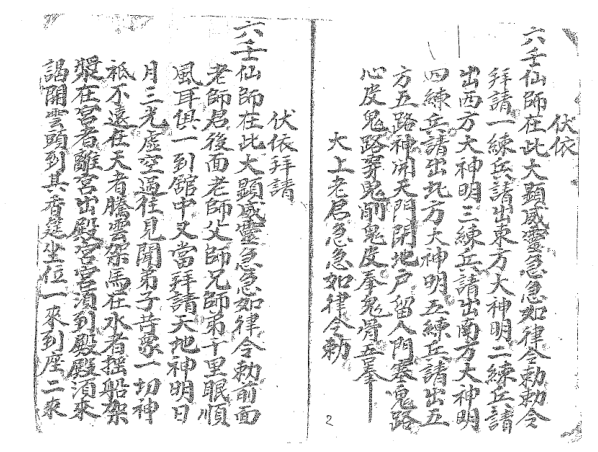 伏依
六壬仙師在此大顯威靈急急如律令勅勅令
拜請一練兵請出東方大神明二練兵請
出西方大神明三練兵請出南方大神明
四練兵請出北方大神明五練兵請出五
方五路神開天門閉地戶留人門塞鬼路
心皮鬼路穿鬼前鬼皮奉鬼骨五奉
大上老君急急如律令勅
2
伏依拜請
六壬仙師在此大顯威靈急急如律令勅前面
老師君後面老師父師兄師弟千里眠順
風耳俱一到舘中又當拜請天地神明日
月三光虛空過往見聞弟子苦衆一切神
祗不遠在天者騰雲架馬在水者搖船架
漿在宮者離宮出殿宮宮須到殿殿須來
謁開雲頭到其香筵坐位一來到座二來